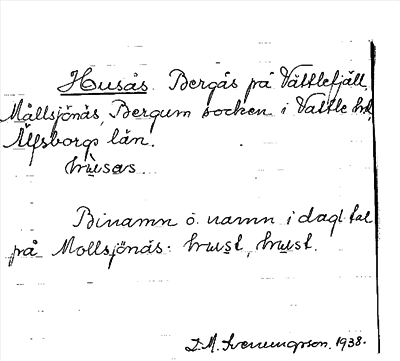 Husås. Bergås på Vättlefjäll,
Mållsjönäs, Bergum socken i Vättle hd,
Älfsborgs län.
hùsas.
Binamn o. namn i dagl tal
på Mollsjönäs: hust, hust.
D. M. 1938.